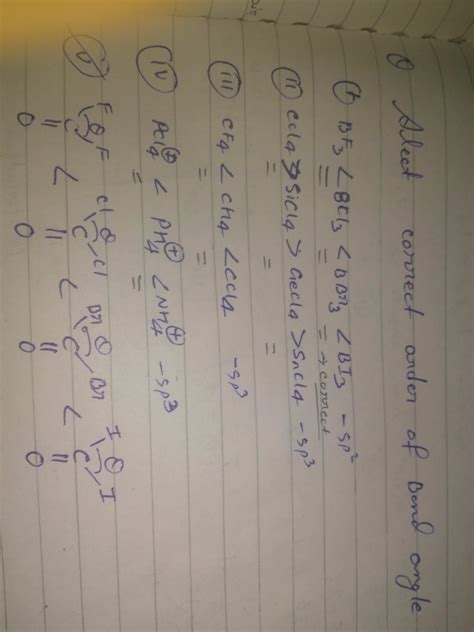 Q Select correct order of Bond angle
(i) BF3 < BCl3 < BBr3 < BI3 - sp2
= = = → correct
(ii) CCl4 > SiCl4 > GeCl4 > SnCl4 - sp3
= = =
(iii) CF4 < CH4 < CCl4 - sp3
= =
(iv) PCl4⊕ < PH4⊕ < NH4⊕ - sp3
= =
(v) F θ F < Cl θ Cl < Br θ Br < I θ I
C C C C
|| || || ||
O O O O